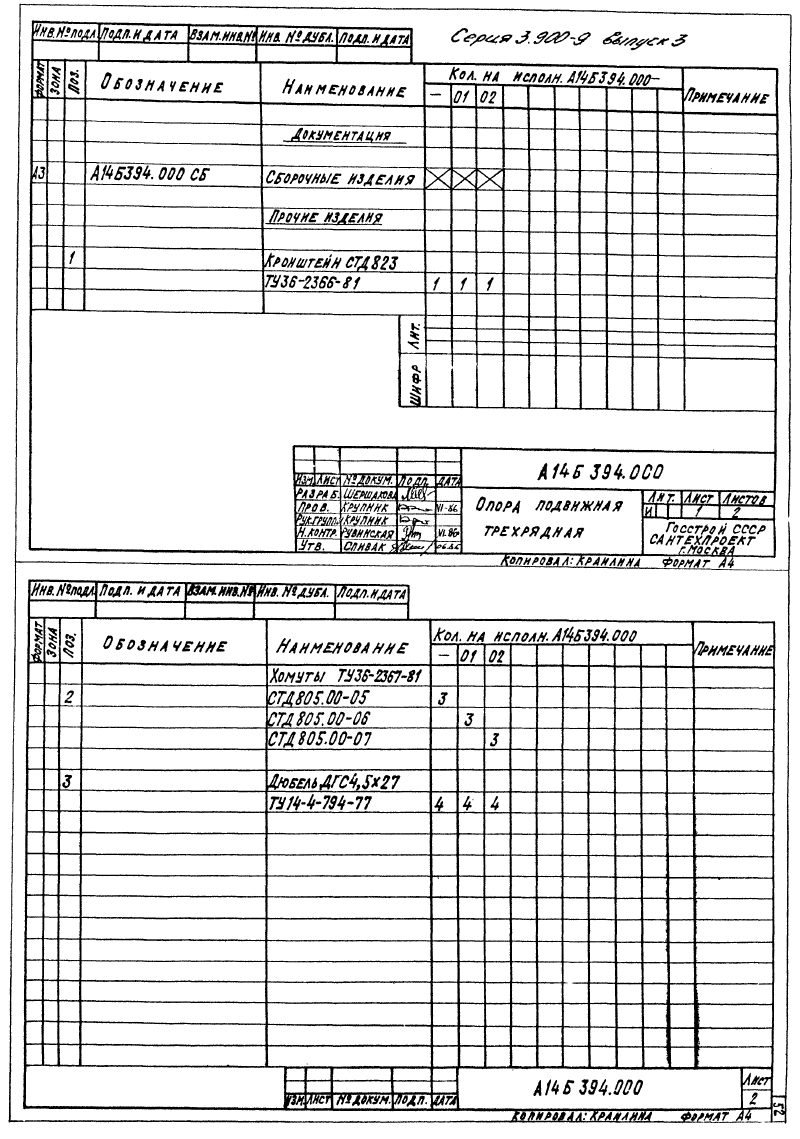 Серия 3.900-9 выпуск 3
Инв.№подл. Подп. и дата Взам.инв.№ Инв. № дубл. Подп. и дата
Формат Зона Поз. Обозначение Наименование Кол. на исполн. А14Б394.000- Примечание
– 01 02
Документация
А3 А14Б394.000 СБ Сборочные изделия
Прочие изделия
1 Кронштейн СТД 823
ТУ36-2366-81 1 1 1
Лит.
Шифр
А14Б 394.000
Изм. Лист № докум. Подп. Дата
Разраб. Шершакова
Пров. Крупник VI-86
Рук.групп. Крупник
Н.контр. Рувинская VI.86
Утв. Спивак 06.86
Опора подвижная
трехрядная
Лит. Лист Листов
И 1 2
Госстрой СССР
Сантехпроект
г.Москва
Копировал: Краилина Формат А4
Инв. №подл. Подп. и дата Взам.инв.№ Инв. № дубл. Подп. и дата
Формат Зона Поз. Обозначение Наименование Кол. на исполн. А14Б394.000 Примечание
– 01 02
Хомуты ТУ36-2367-81
2 СТД 805.00-05 3
СТД 805.00-06 3
СТД 805.00-07 3
3 Дюбель ДГС4,5х27
ТУ14-4-794-77 4 4 4
Изм. Лист № докум. Подп. Дата
А14Б 394.000
Лист
2
52
Копировал: Краилина Формат А4